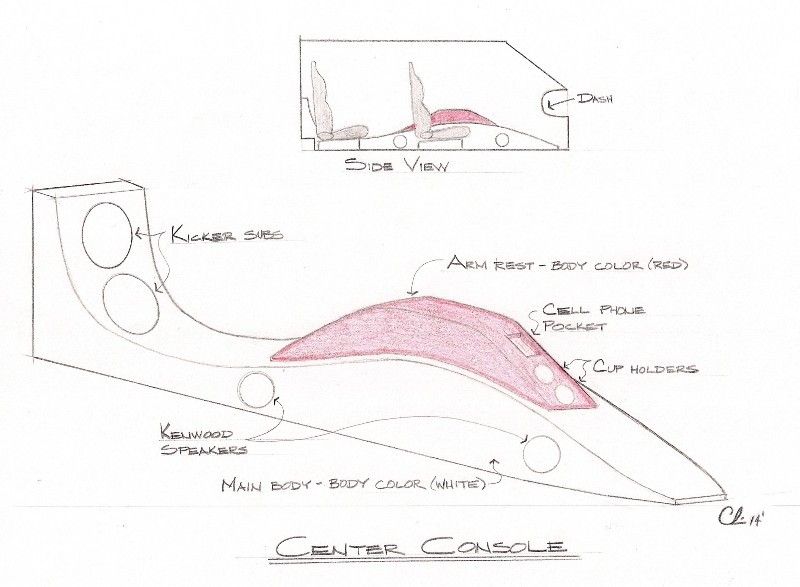 DASH
SIDE VIEW
KICKER SUBS
ARM REST - BODY COLOR (RED)
CELL PHONE
POCKET
CUP HOLDERS
KENWOOD
SPEAKERS
MAIN BODY - BODY COLOR (WHITE)
14'
CENTER CONSOLE